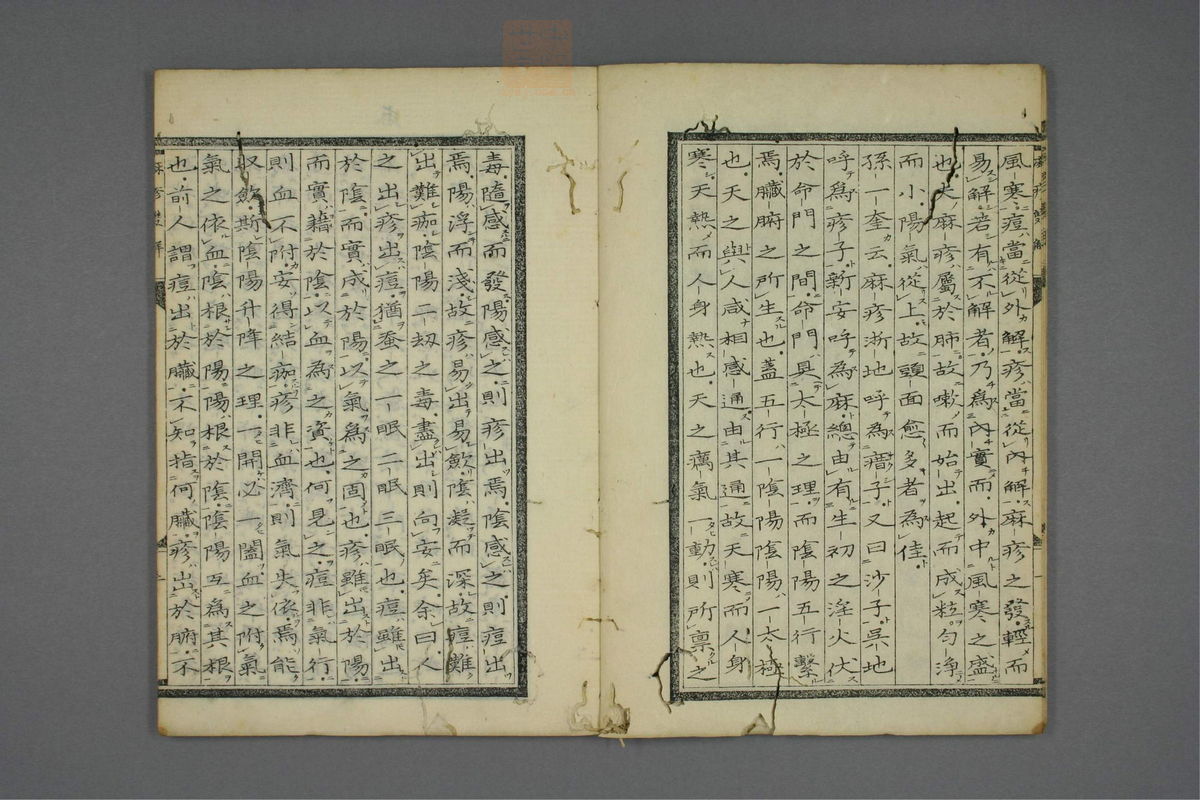 風寒痘當從外解疹當從內解麻疹之發輕而
易解若有不解者乃為內實而外中風寒之盛
也夫麻疹屬於肺故嗽而始出起而成粒勻淨
而小陽氣從上故頭面愈多者為佳
孫一奎云麻疹浙地呼為瘄子又曰沙子吳地
呼為疹子新安呼為麻總由有生初之淫火伏
於命門之間命門具太極之理而陰陽五行繫
焉臟腑之所生也蓋五行一陰陽陰陽一太極
也天之與人咸相感通由其通故天寒而人身
寒天熱而人身熱也天之癘氣一動則所稟之
毒隨感而發陽感之則疹出焉陰感之則痘出
焉陽浮而淺故疹易出易斂陰凝而深故痘難
出難痂陰陽二劫之毒盡出則向安矣余曰人
之出疹出痘猶蚕之一眠二眠三眠也痘雖出
於陰而實成於陽以氣為之固也疹雖出於陽
而實藉於陰以血為之資也何見之痘非氣行
則血不附安得結痂疹非血濟則氣失依焉能
收斂斯陰陽升降之理一開必一闔血之附氣
氣之依血陰根於陽陽根於陰陰陽互為其根
也前人謂痘出於臟不知指何臟疹出於腑不